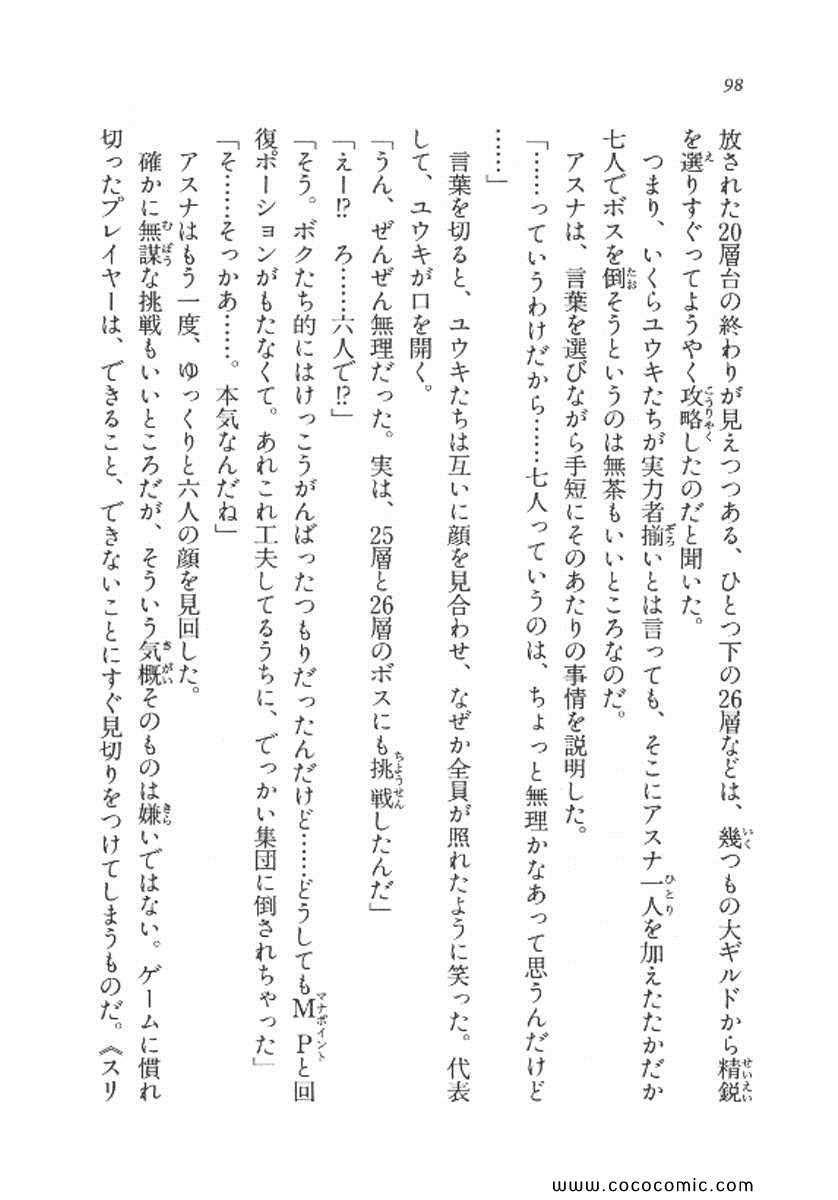 98
放された20層台の終わりが見えつつある、ひとつ下の26層などは、幾つもの大ギルドから精鋭
を選りすぐってようやく攻略したのだと聞いた。
つまり、いくらユウキたちが実力者揃いとは言っても、そこにアスナ一人を加えたたかだか
七人でボスを倒そうというのは無茶もいいところなのだ。
アスナは、言葉を選びながら手短にそのあたりの事情を説明した。
「……っていうわけだから……七人っていうのは、ちょっと無理かなあって思うんだけど
……」
言葉を切ると、ユウキたちは互いに顔を見合わせ、なぜか全員が照れたように笑った。代表
して、ユウキが口を開く。
「うん、ぜんぜん無理だった。実は、25層と26層のボスにも挑戦したんだ」
「えー!? ろ……六人で!?」
「そう。ボクたち的にはけっこうがんばったつもりだったんだけど……どうしてもMPと回
復ポーションがもたなくて。あれこれ工夫してるうちに、でっかい集団に倒されちゃった」
「そ……そっかあ……。本気なんだね」
アスナはもう一度、ゆっくりと六人の顔を見回した。
確かに無謀な挑戦もいいところだが、そういう気概そのものは嫌いではない。ゲームに慣れ
切ったプレイヤーは、できること、できないことにすぐ見切りをつけてしまうものだ。《スリ
www.cococomic.com